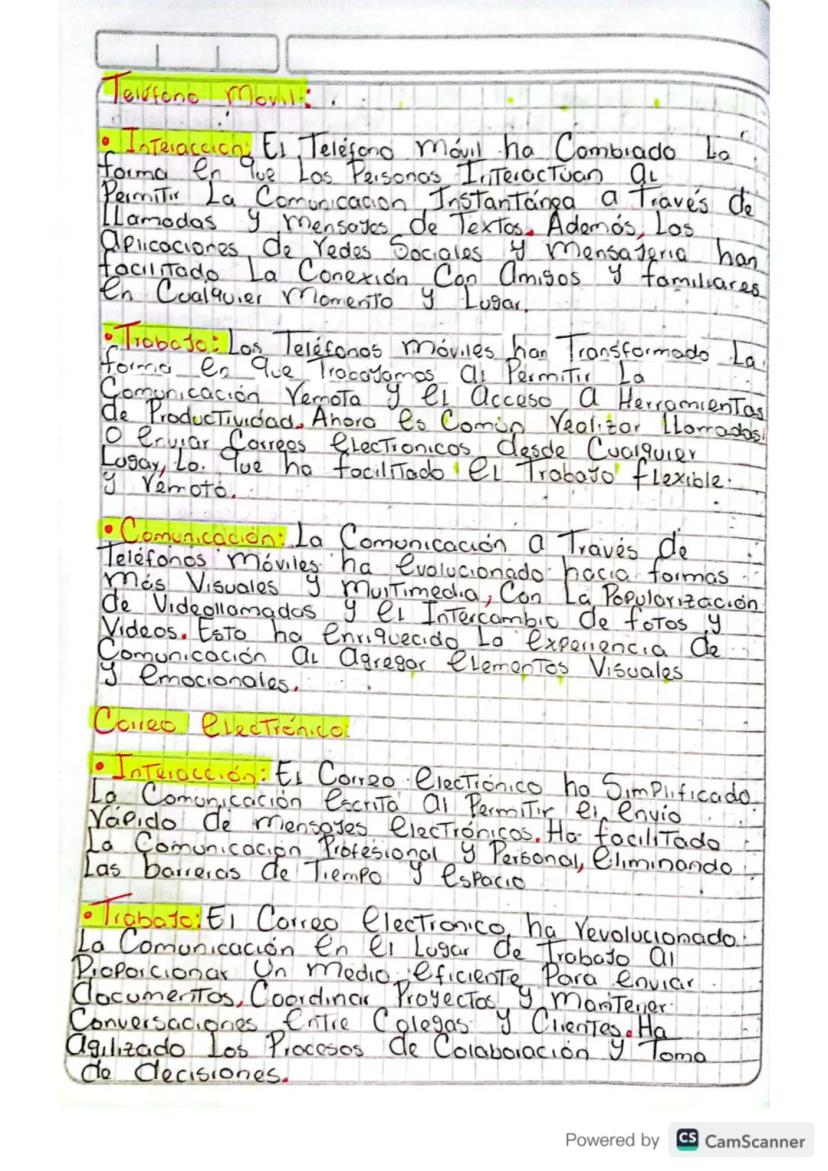 Teléfono Movil:
• Interacción: El Teléfono móvil ha Cambiado la
forma en que Las Personas Interactuan al
Permitir La Comunicacion Instantánea a Través de
Llamadas y mensajes de Textos. Además, Las
aplicaciones de redes Sociales y mensajeria han
facilitado La Conexión Con amigos y familiares
en Cualquier momento y Lugar.
• Trabajo: Los Teléfonos móviles han Transformado La
forma en que Trabajamos al Permitir La
Comunicación remota y el acceso a Herramientas
de Productividad. Ahora es Común realizar llamadas
o enviar Correos electronicos desde Cualquier
Lugar, Lo que ha facilitado el Trabajo flexible
y remoto.
• Comunicación: La Comunicación a Través de
Teléfonos móviles ha evolucionado hacia formas
más Visuales y multimedia, Con La Popularización
de Videollamadas y el Intercambio de fotos y
Videos. Esto ha enriquecido La experiencia de
Comunicación al agregar elementos Visuales
y emocionales.
Correo electrónico:
• Interacción: El Correo electrónico ha Simplificado
La Comunicación escrita al Permitir el envio
rápido de mensajes electrónicos. Ha facilitado
La Comunicación Profesional y Personal, eliminando
Las barreras de Tiempo y espacio
• Trabajo: El Correo electronico ha revolucionado
La Comunicación en el Lugar de Trabajo al
Proporcionar Un medio eficiente Para enviar
documentos, Coordinar Proyectos y mantener
Conversaciones entre Colegas y Clientes. Ha
agilizado Los Procesos de Colaboración y Toma
de decisiones.
Powered by CS CamScanner